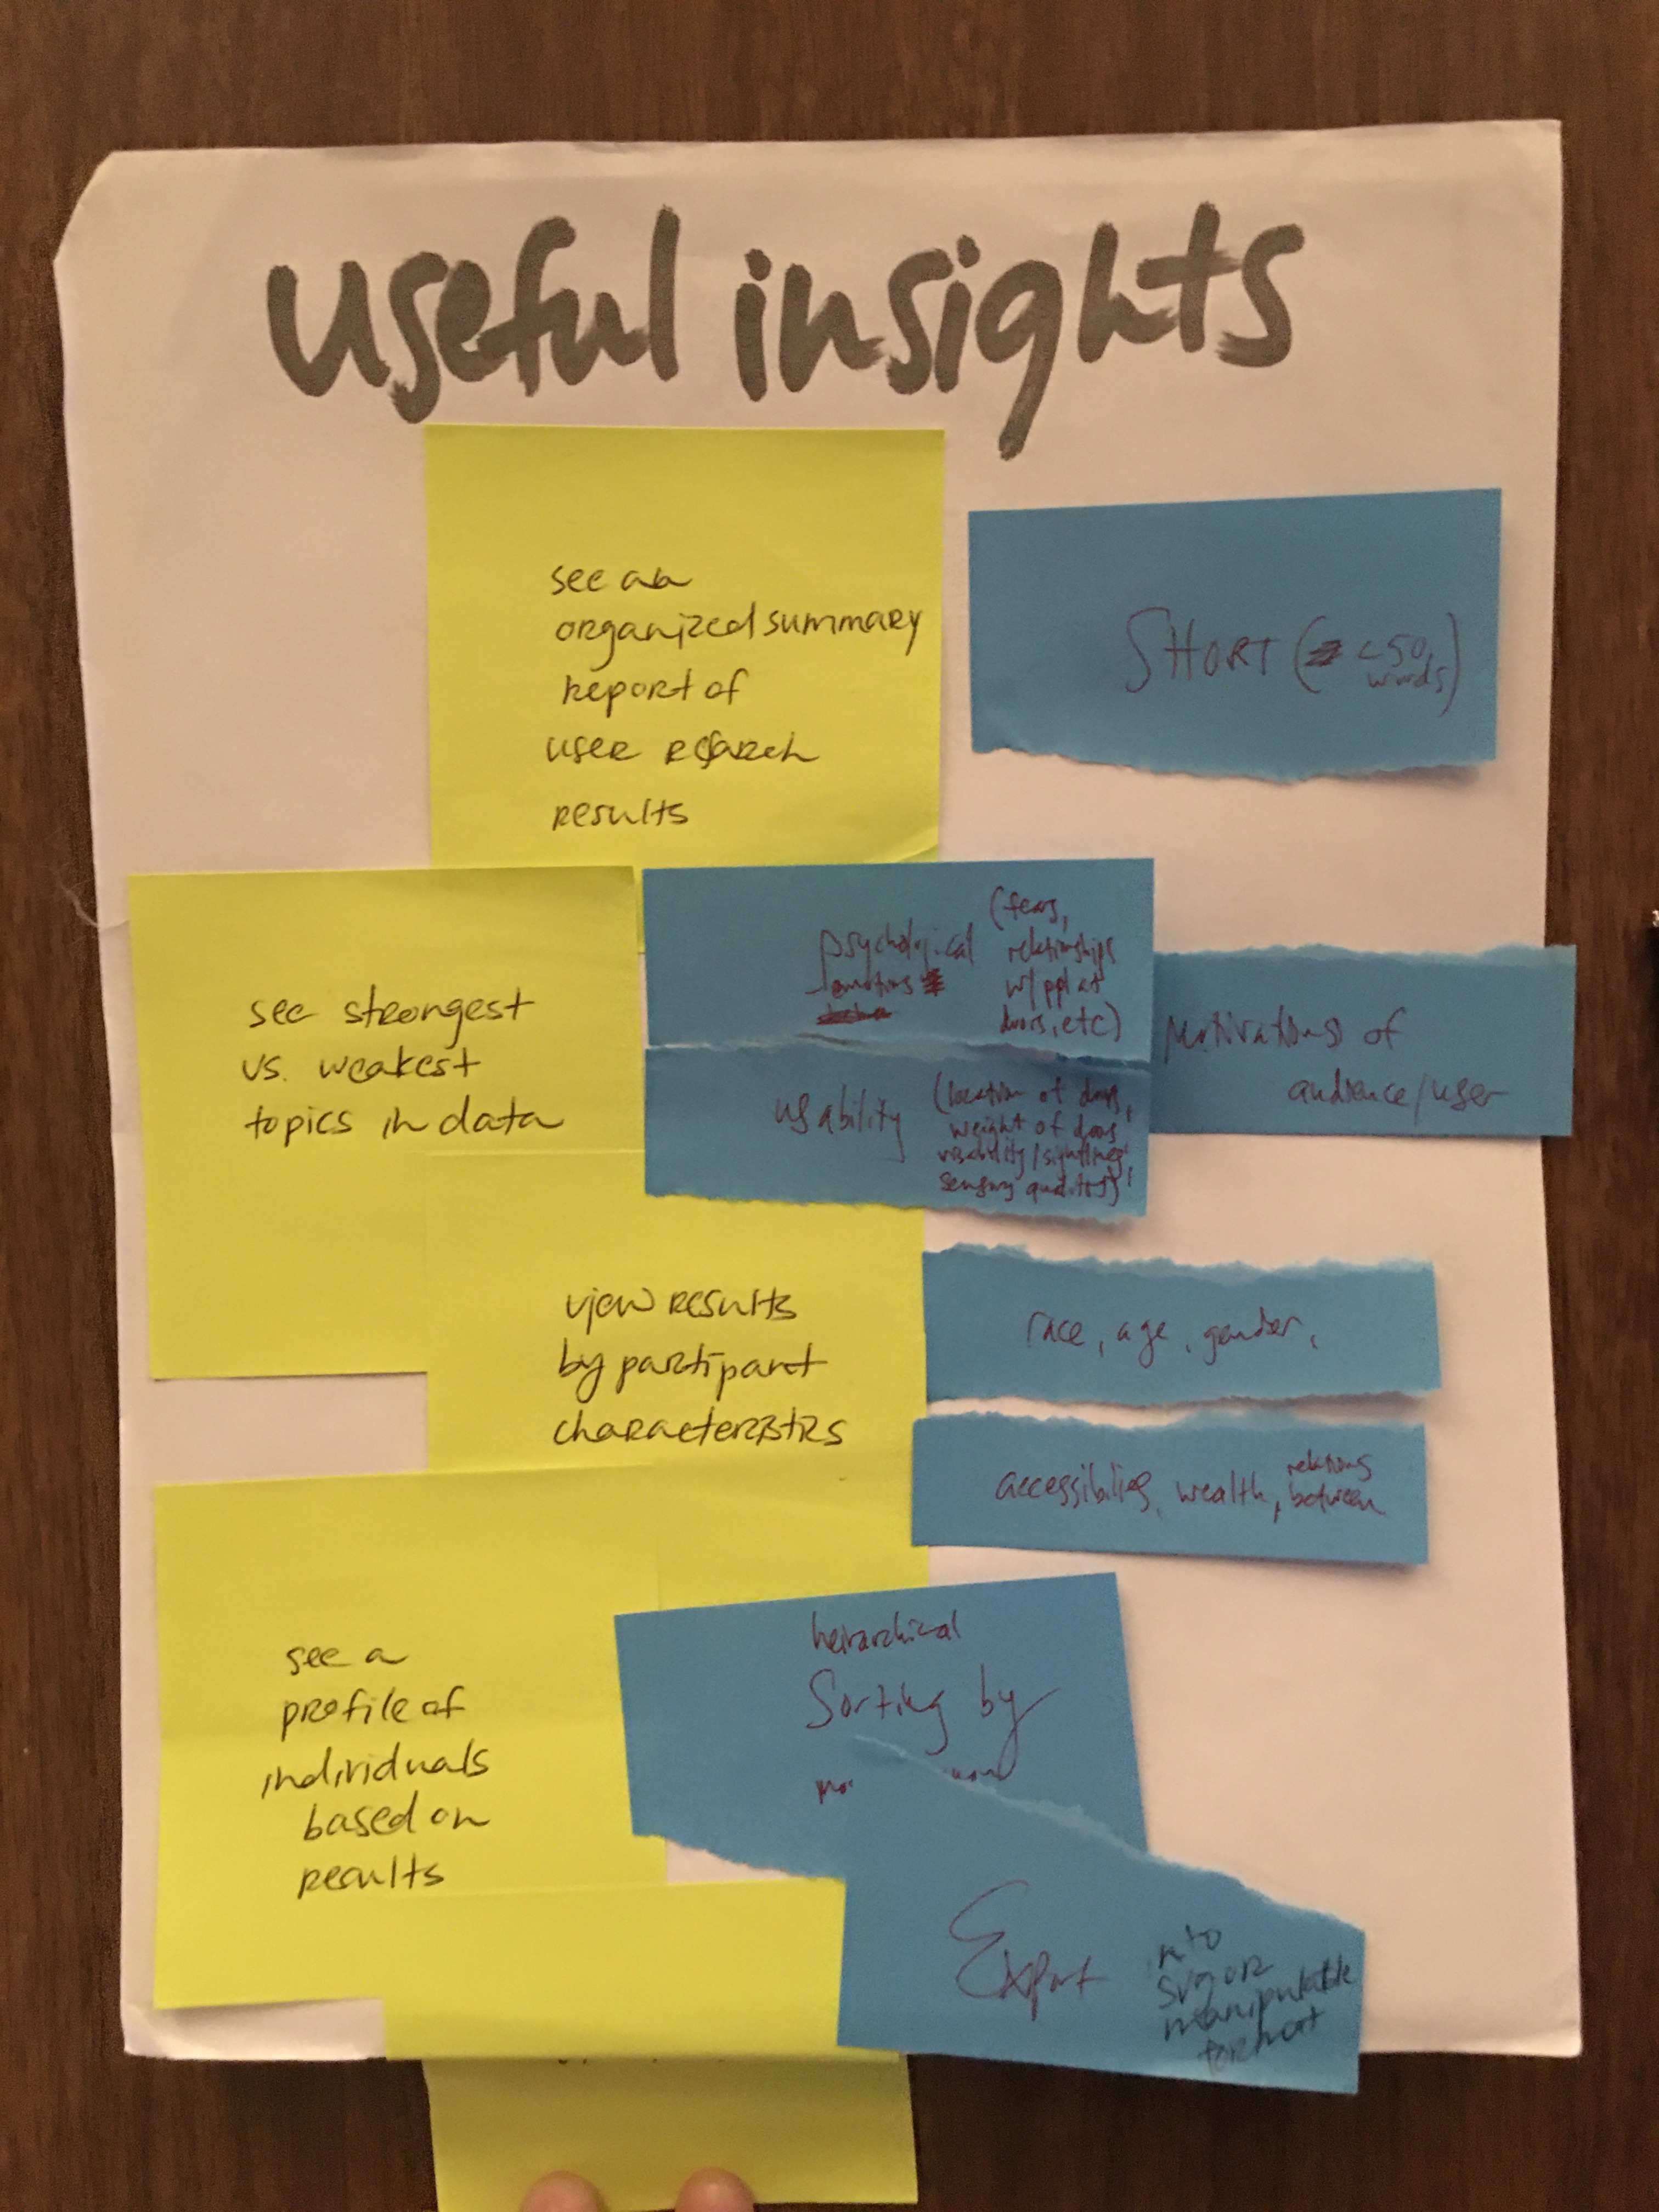 useful insights
see an
organized summary
report of
user research
results
SHORT (<50
words)
see strongest
vs. weakest
topics in data
psychological
emotions
(fears,
relationships
w/ppl at
doors, etc)
usability
(location of doors,
weight of doors,
visability/sightlines,
sensory qualities)
Motivations of
audience/user
view results
by partipant
characteristics
race, age, gender,
accessibilies, wealth, relations
between
see a
profile of
individuals
based on
results
heirarchical
Sorting by
Export
svg or
manipulatable
format